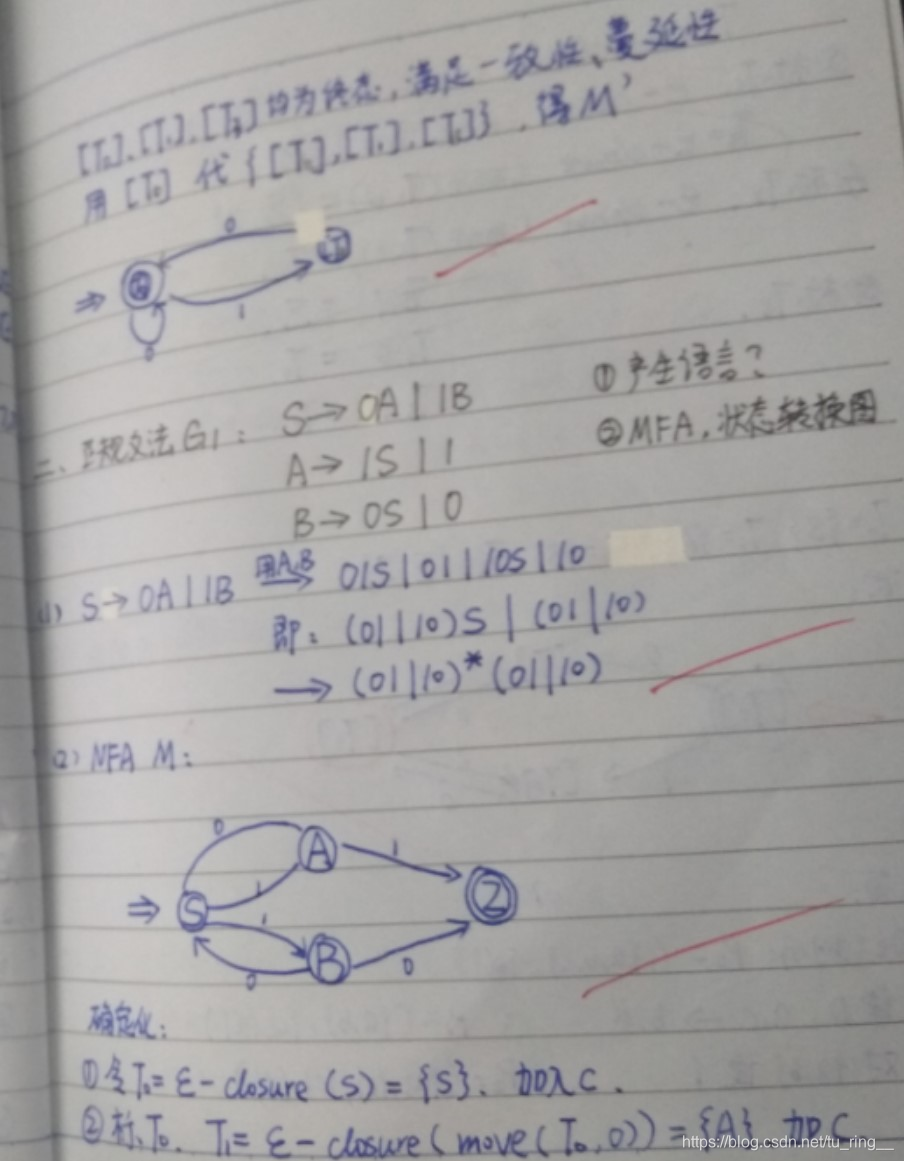 [T₀],[T₁],[T₃]均为终态,满足一致性、蔓延性
用 [T₀] 代 {[T₀],[T₁],[T₃]} ,得M'
0
⇒
1
0
二、正规文法G1: S→0A|1B ①产生语言?
A→1S|1 ②MFA,状态转换图
B→0S|0
(1) S→0A|1B 用A,B 01S|01|10S|10
即: (01|10)S | (01|10)
→ (01|10)*(01|10)
(2) NFA M:
0 A 1
⇒ S 1 Z
1 B 0
0
确定化:
①令T₀=ε-closure(S)={S}. 加入C.
②标T₀. T₁=ε-closure(move(T₀,0))={A} 加C
https://blog.csdn.net/tu_ring__